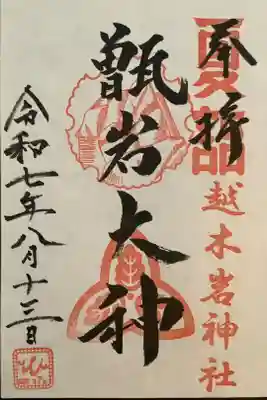 奉拝
越木岩神社
甑岩大神
令和七年八月十三日